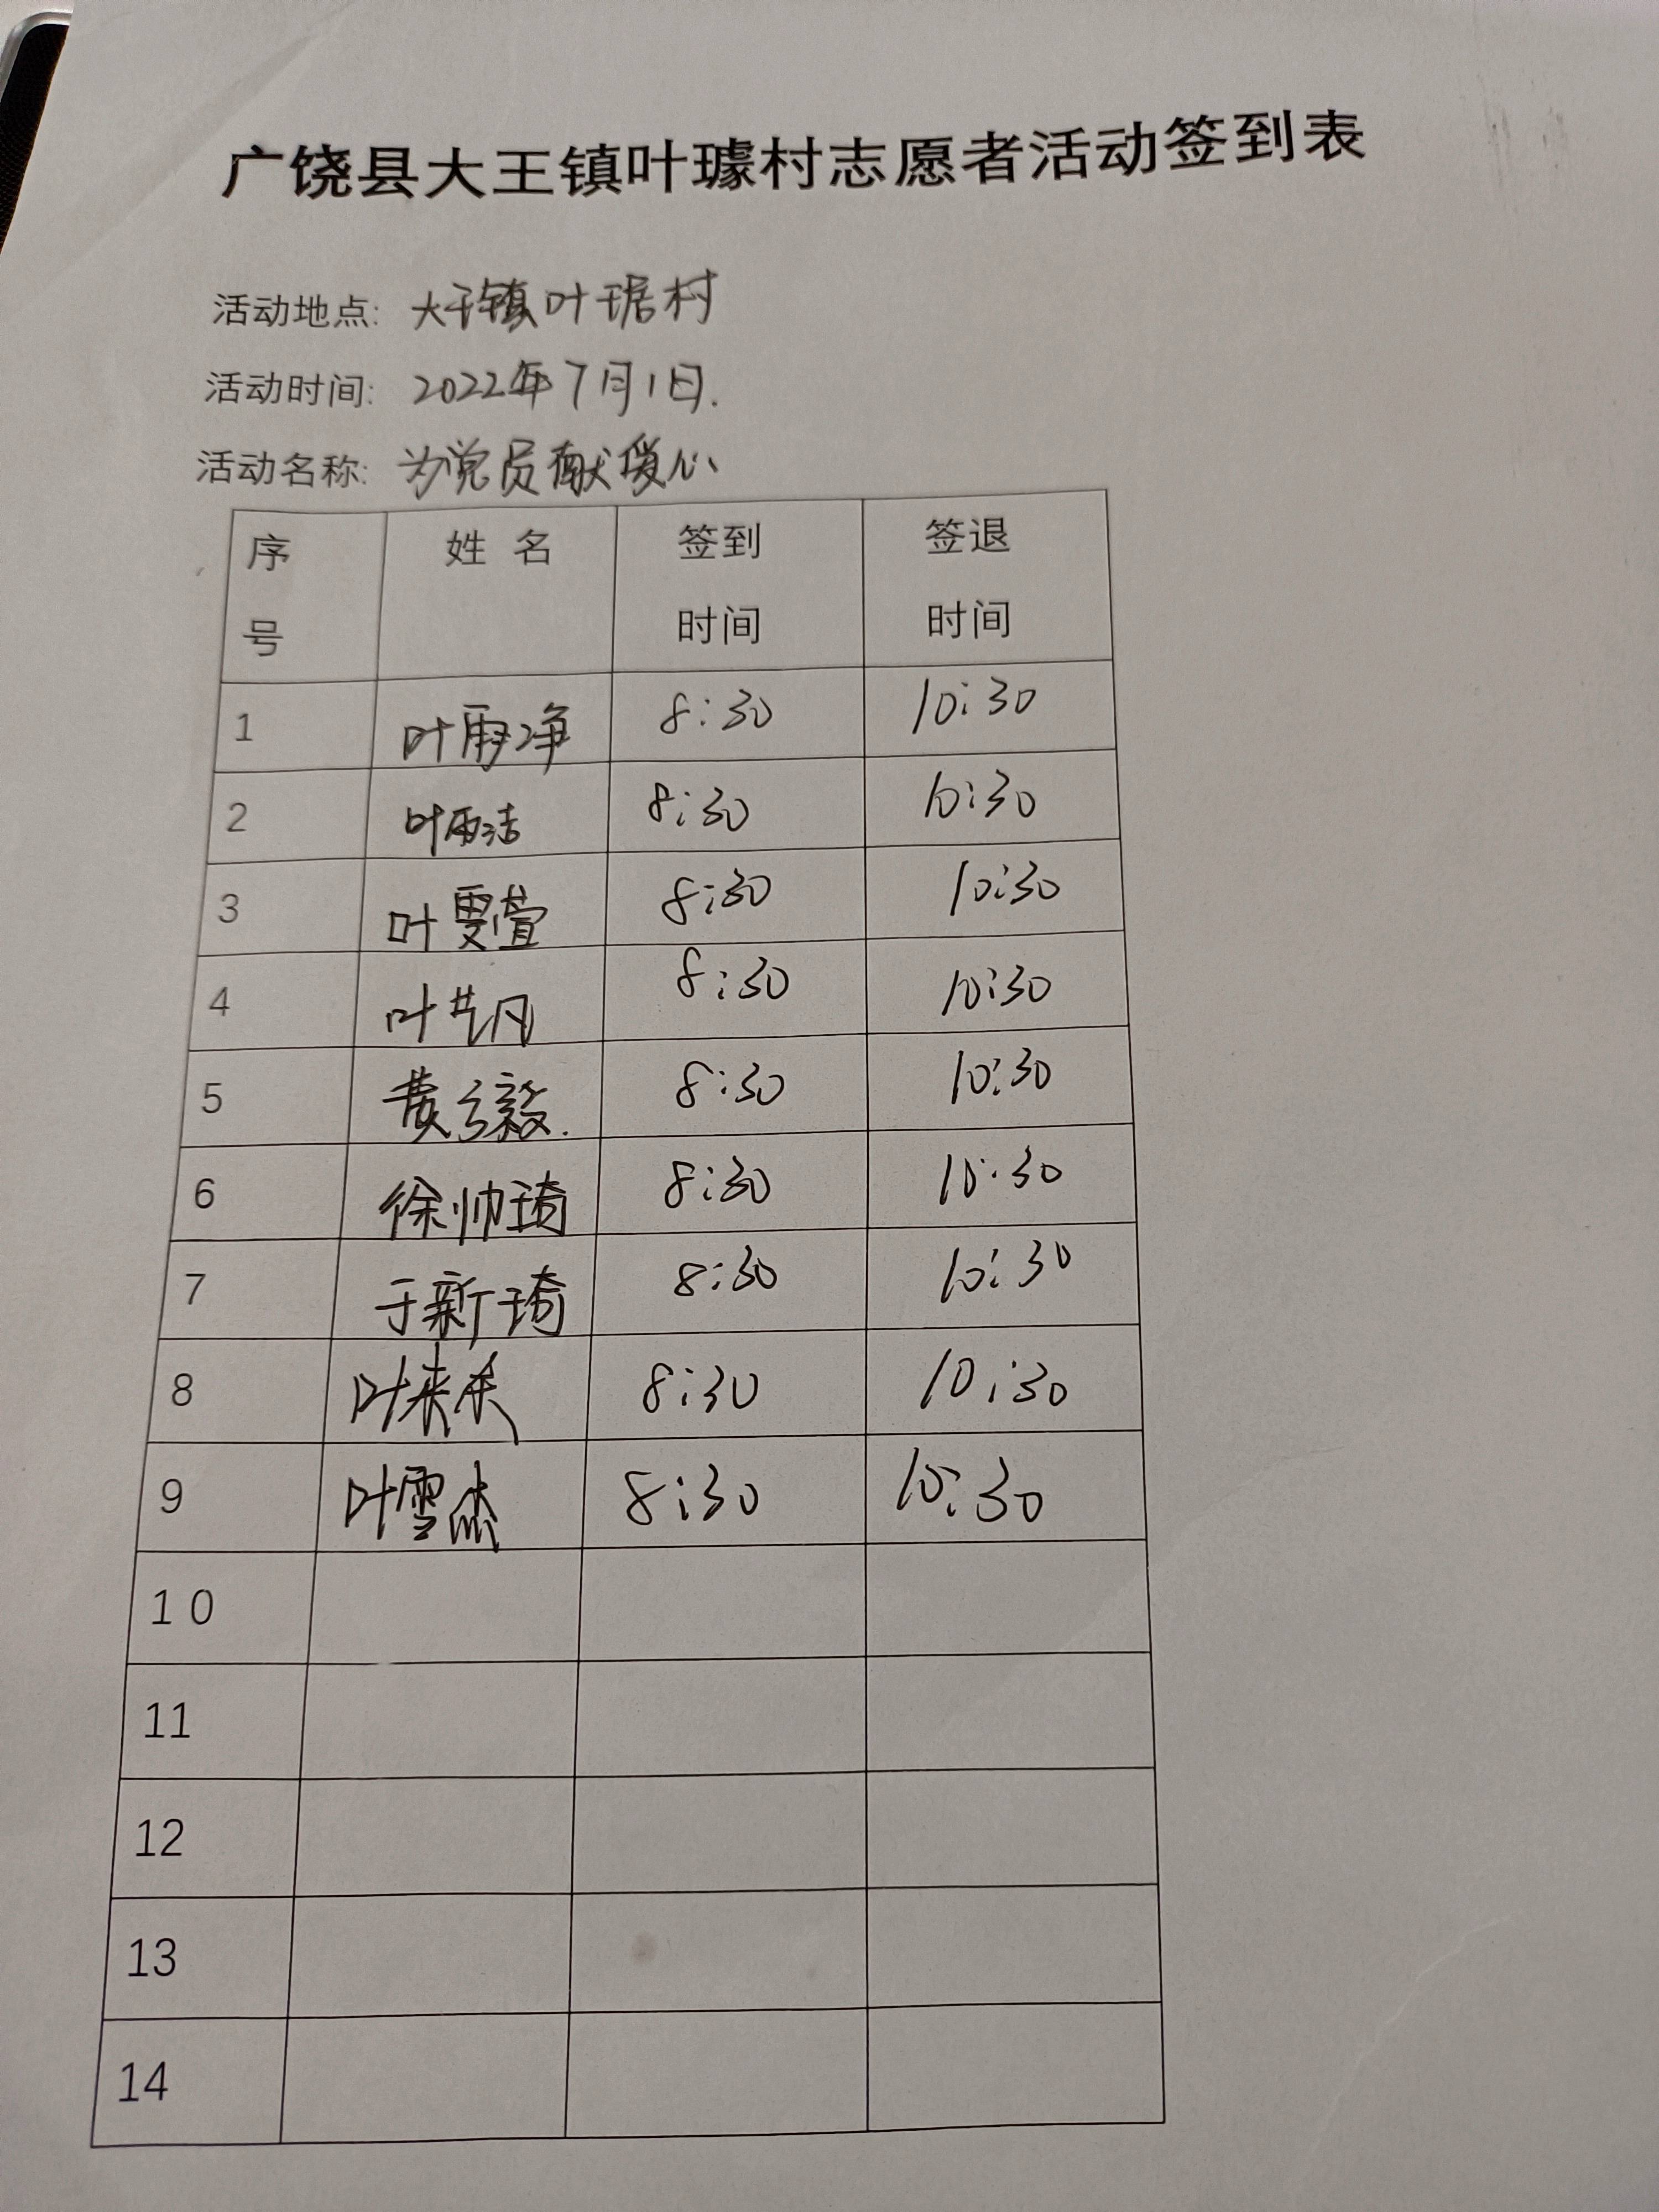 广饶县大王镇叶璩村志愿者活动签到表
活动地点: 大王镇叶琚村
活动时间: 2022年7月1日.
活动名称: 为党员献爱心
序号 姓名 签到时间 签退时间
1 叶雨净 8:30 10:30
2 叶雨洁 8:30 10:30
3 叶雯萱 8:30 10:30
4 叶艺凡 8:30 10:30
5 黄弓毅. 8:30 10:30
6 徐帅琦 8:30 10:30
7 于新琦 8:30 10:30
8 叶来 8:30 10:30
9 叶雪杰 8:30 10:30
10
11
12
13
14